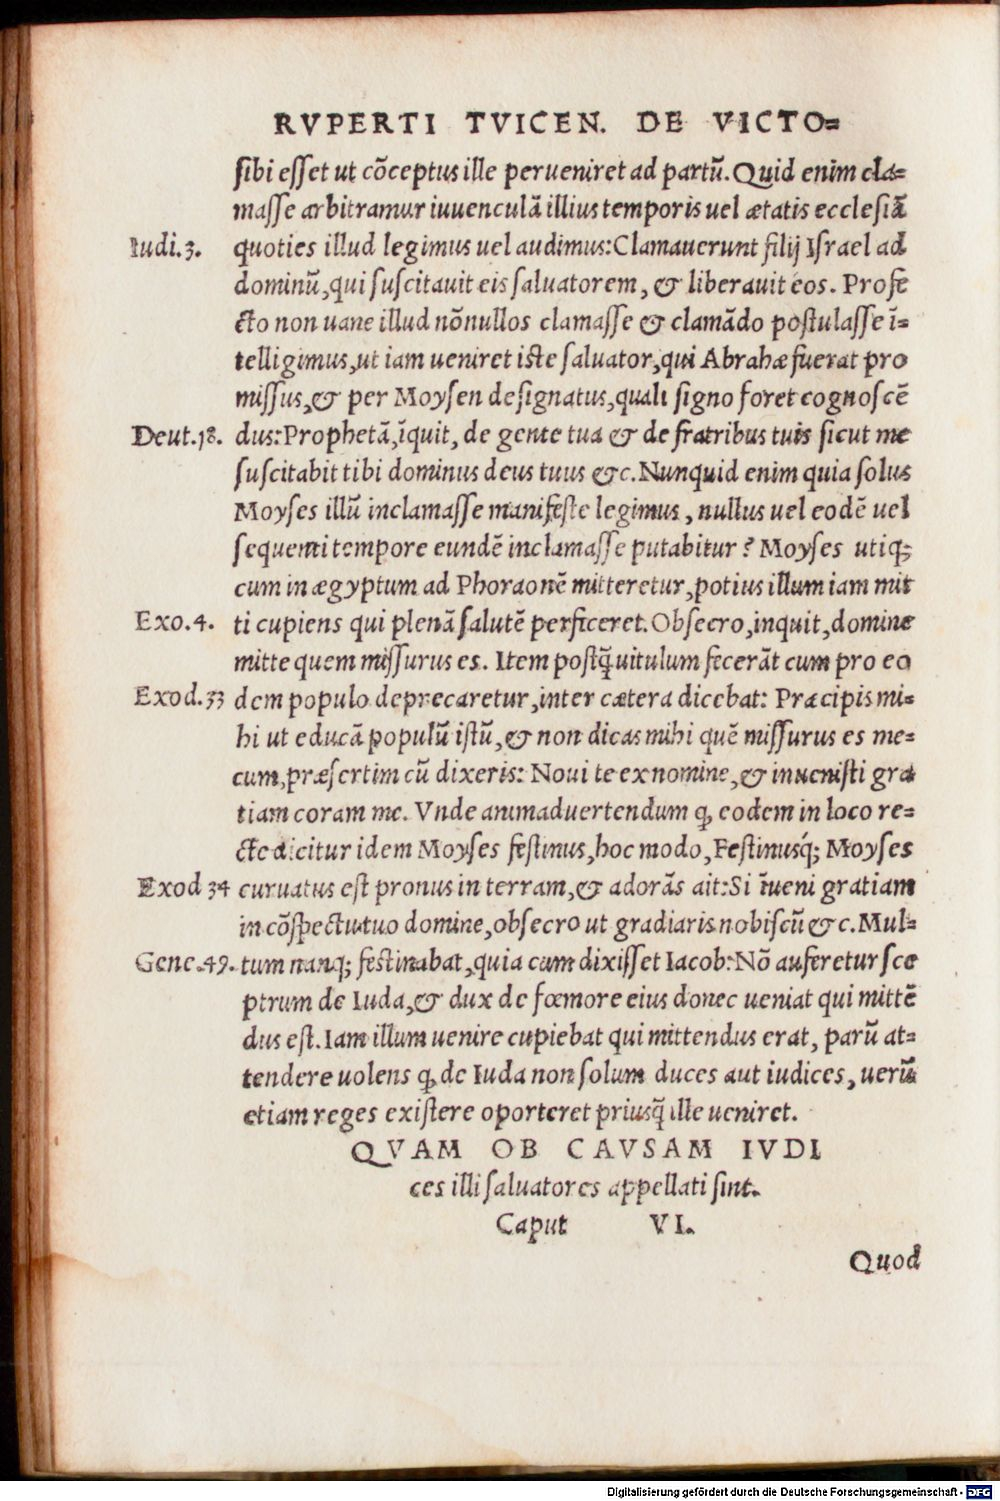 RVPERTI TVICEN. DE VICTO=
sibi esset ut cōceptus ille perueniret ad partū. Quid enim cla=
masse arbitramur iuuenculā illius temporis uel ætatis ecclesiā
Iudi.3. quoties illud legimus uel audimus: Clamauerunt filij Israel ad
dominū, qui suscitauit eis saluatorem, & liberauit eos. Profe
cto non uane illud nōnullos clamasse & clamādo postulasse ī=
telligimus, ut iam ueniret iste saluator, qui Abrahæ fuerat pro
missus, & per Moysen designatus, quali signo foret cognoscē
Deut.18. dus: Prophetā, īquit, de gente tua & de fratribus tuis sicut me
suscitabit tibi dominus deus tuus &c. Nunquid enim quia solus
Moyses illū inclamasse manifeste legimus, nullus uel eodē uel
sequenti tempore eundē inclamasse putabitur? Moyses utiq;
cum in ægyptum ad Phoraonē mitteretur, potius illum iam mit
Exo.4. ti cupiens qui plenā salutē perficeret. Obsecro, inquit, domine
mitte quem missurus es. Item postq̄ uitulum fecerāt cum pro eo
Exod.33 dem populo deprecaretur, inter cætera dicebat: Præcipis mi=
hi ut educā populū istū, & non dicas mihi quē missurus es me=
cum, præsertim cū dixeris: Noui te ex nomine, & inuenisti gra
tiam coram me. Vnde animaduertendum ꝙ eodem in loco re=
cte dicitur idem Moyses festinus, hoc modo, Festinusq́; Moyses
Exod 34 curuatus est pronus in terram, & adorās ait: Si īueni gratiam
in cōspectu tuo domine, obsecro ut gradiaris nobiscū &c. Mul=
Gene.49. tum nanq; festinabat, quia cum dixisset Iacob: Nō auferetur sce
ptrum de Iuda, & dux de fœmore eius donec ueniat qui mittē
dus est. Iam illum uenire cupiebat qui mittendus erat, parū at=
tendere uolens ꝙ de Iuda non solum duces aut iudices, uerū
etiam reges existere oporteret priusq̄ ille ueniret.
QVAM OB CAVSAM IVDI
ces illi saluatores appellati sint.
Caput VI.
Quod
Digitalisierung gefördert durch die Deutsche Forschungsgemeinschaft - DFG